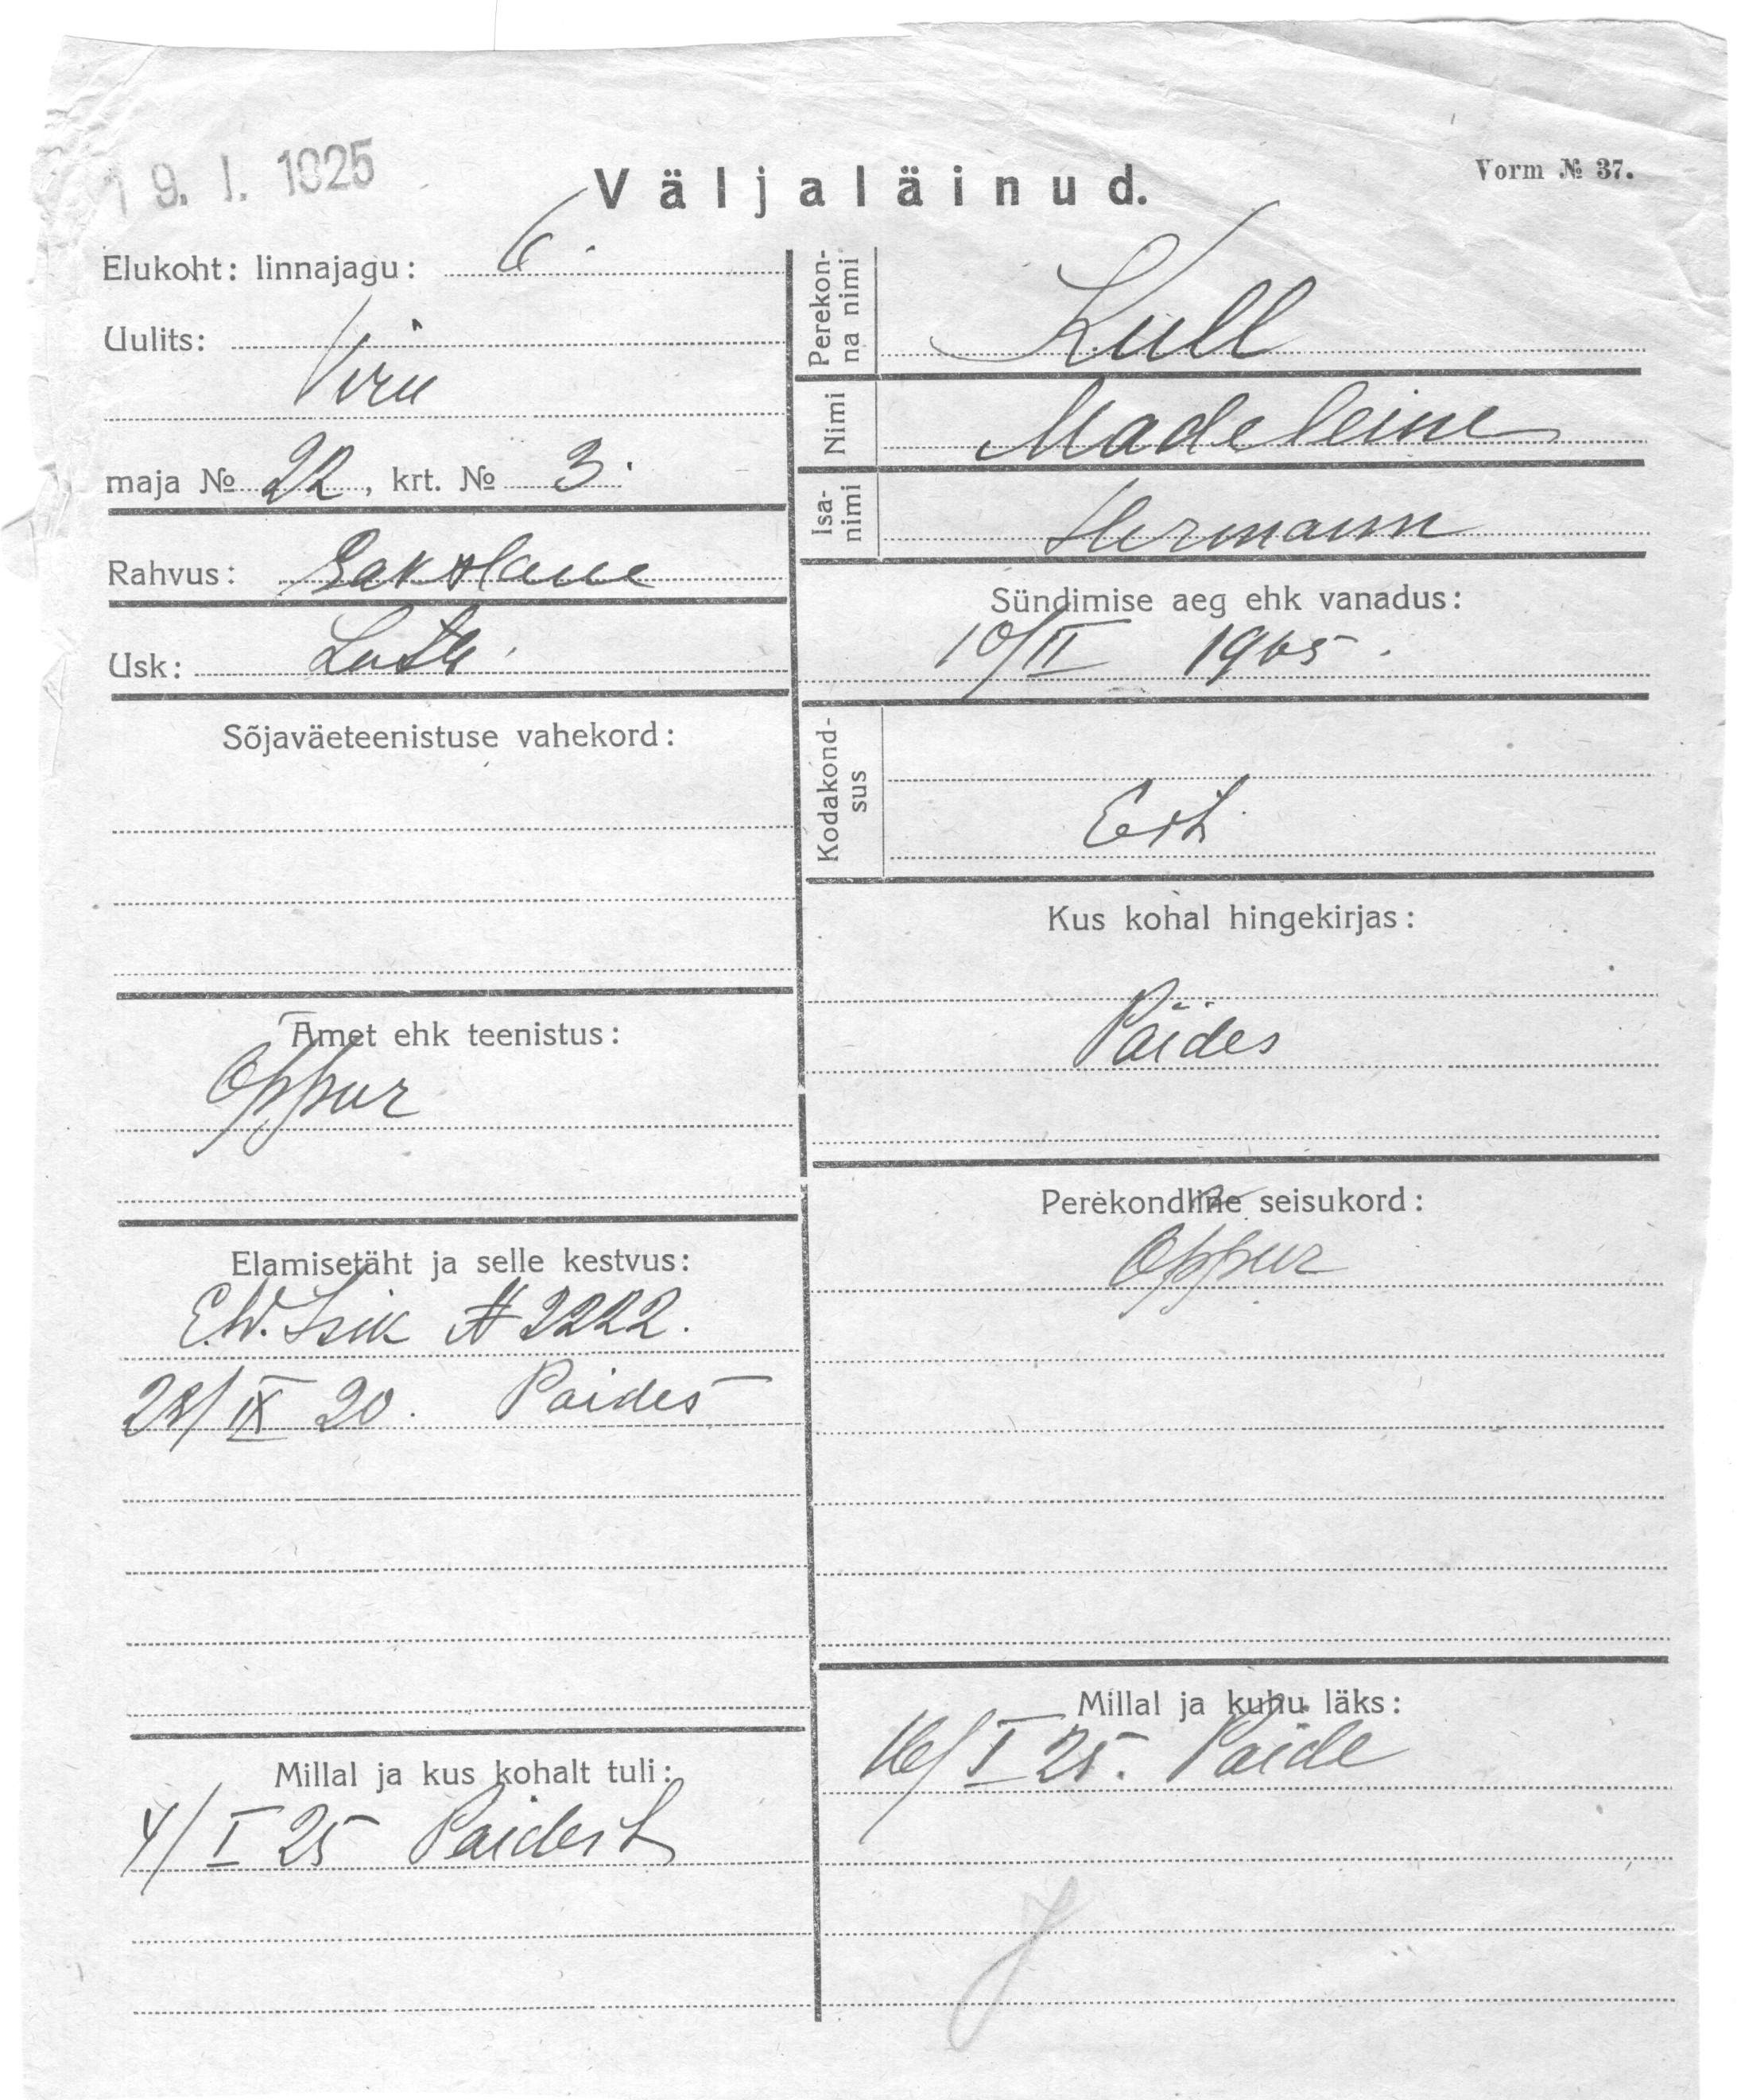 19. I. 1925
Väljaläinud.
Vorm № 37.
Elukoht: linnajagu: 6.
Uulits:
Viru
maja № 22, krt. № 3.
Rahvus: Sakslane
Usk: Luth.
Sõjaväeteenistuse vahekord:
Amet ehk teenistus:
Õppur
Elamisetäht ja selle kestvus:
E.W. Isik № 2222.
28/IX 20. Paides
Millal ja kus kohalt tuli:
4/I 25 Paidest
Perekonna nimi
Kull
Nimi
Madeleine
Isanimi
Hermann
Sündimise aeg ehk vanadus:
10/II 1905.
Kodakondsus
Esti
Kus kohal hingekirjas:
Paides
Perekondline seisukord:
Õppur
Millal ja kuhu läks:
16/I 25. Paide